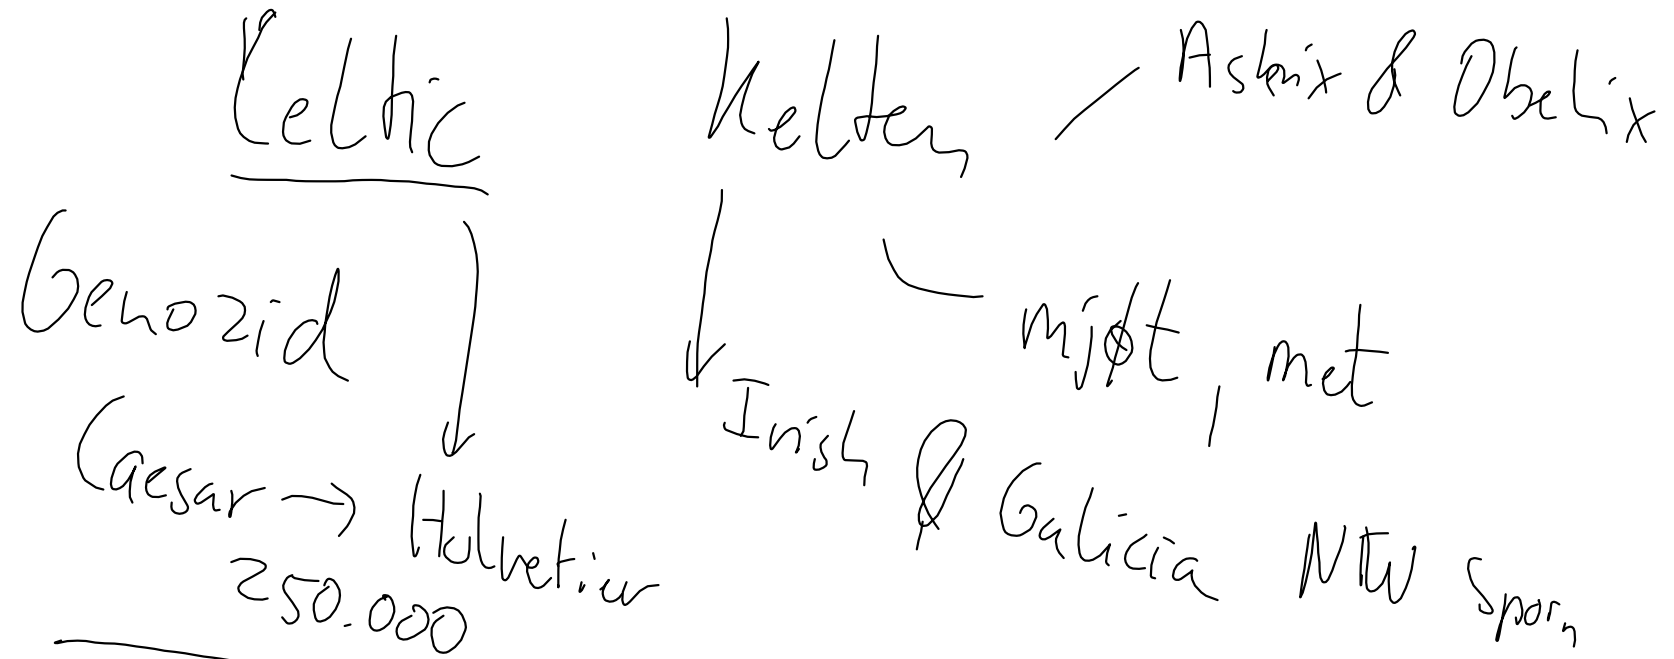 Celtic Kelten Asterix & Obelix
Genozid
mjøt, met
Caesar → Helvetier
250.000
Irish & Galicia NW